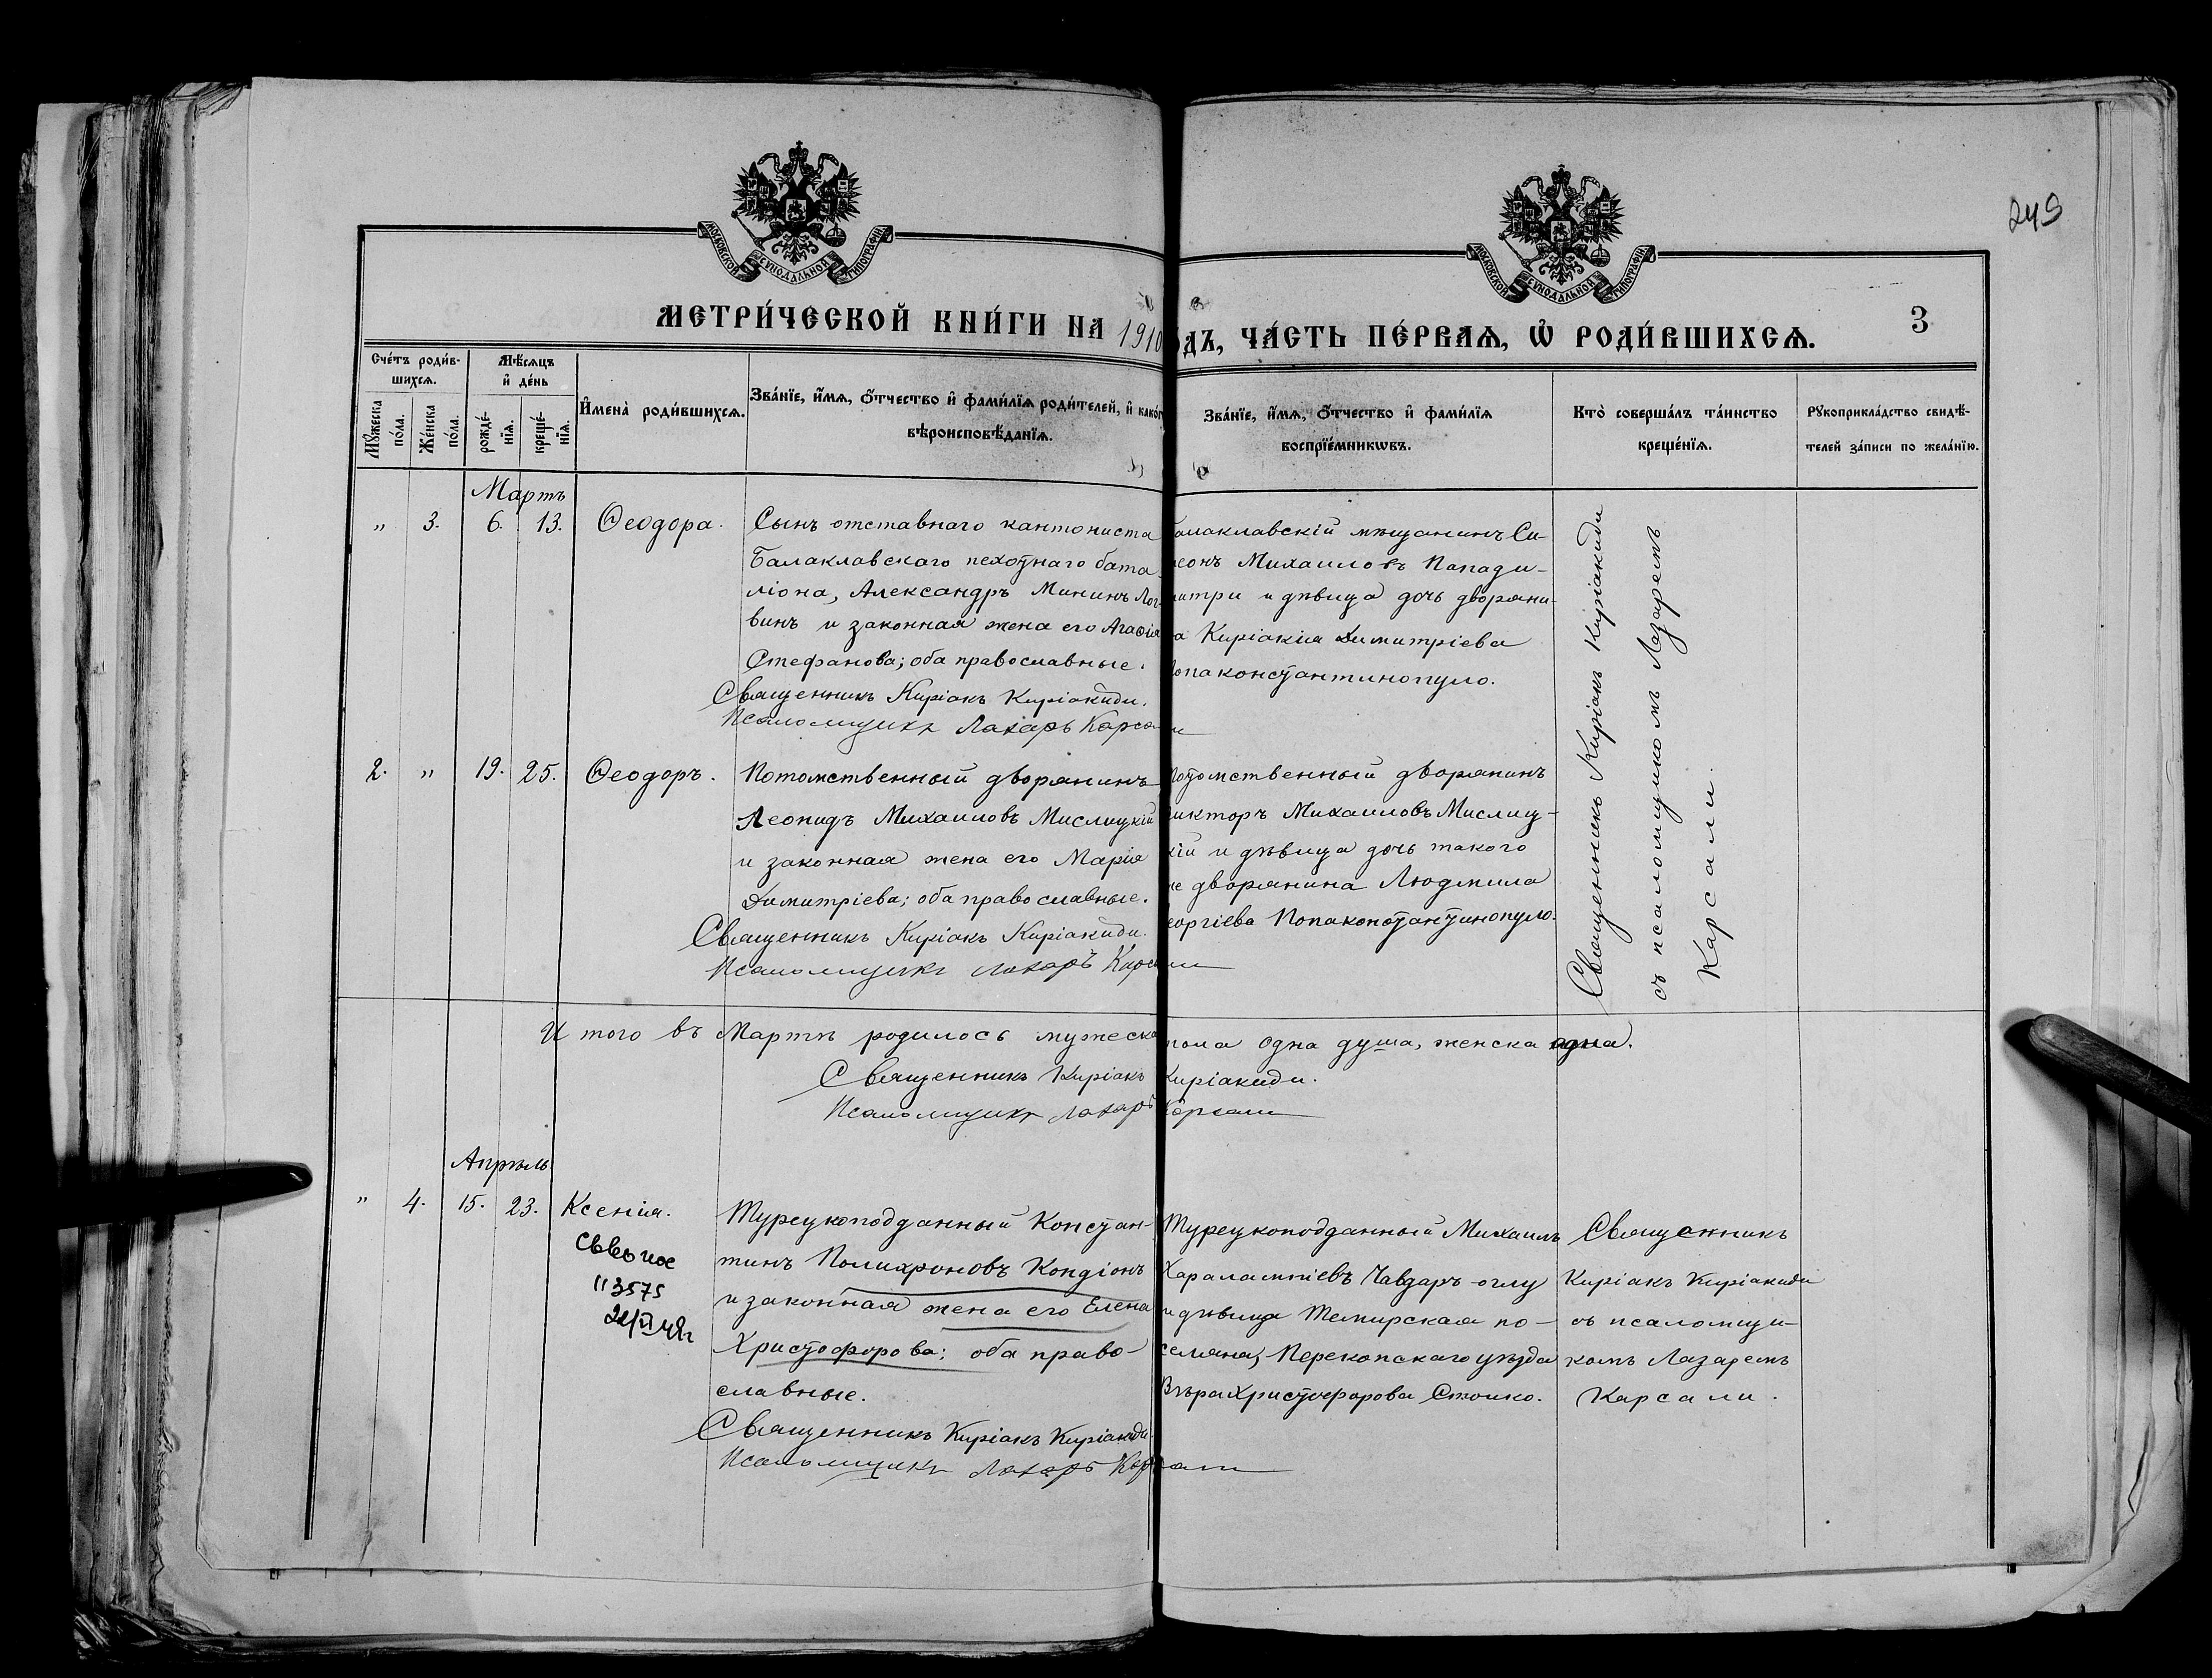 249
МОСКОВСКОЙ СУНОДАЛЬНОЙ ТИПОГРАФІИ
МОСКОВСКОЙ СУНОДАЛЬНОЙ ТИПОГРАФІИ
МЕТРИ́ЧЕСКОЙ КНИ́ГИ НА 1910
ДЪ, ЧА́СТЬ ПЕ́РВАѦ, Ѡ РОДИ́ВШИХСѦ.
3
Сче́тъ роди́в-
шихсѧ.
Мꙋжеска по́ла.
Же́нска по́ла.
Мѣ́сѧцъ
и҆ де́нь
рожде́-
нїѧ.
креще́-
нїѧ.
И҆мена̀ роди́вшихсѧ.
Зва́нїе, и҆́мѧ, ѻ҆́тчество и҆ фами́лїѧ роди́телей, и҆ како́г
вѣроисповѣ́данїѧ.
Зва́нїе, и҆́мѧ, ѻ҆́тчество и҆ фами́лїѧ
воспрїе́мникѡвъ.
Кто̀ соверша́лъ та́инство
креще́нїѧ.
Рꙋкоприкла́дство свидѣ́-
телей за́писи по жела́нїю.
Мартъ
„ 3. 6. 13. Ѳеодора.
Сынъ отставнаго кантониста
Балаклавскаго пехотнаго бата-
ліона, Александръ Мининъ Лог-
винъ и законная жена его Агаѳія
Стефанова; оба православные.
Священникъ Киріакъ Киріакиди.
Псаломщикъ Лазарь Карсали
алаклавскій мѣщанинъ Си-
меонъ Михаиловъ Папади-
митри и дѣвица дочь дворяни-
на Киріакія Димитріева
Попаконстантинопуло.
Священникъ Киріакъ Киріакиди
съ псаломщикомъ Лазаремъ
Карсали.
2. „ 19. 25. Ѳеодоръ.
Потомственный дворянинъ
Леонидъ Михаиловъ Мислицкій
и законная жена его Марія
Димитріева; оба православные.
Священникъ Киріакъ Киріакиди.
Псаломщикъ Лазарь Карсали
Потомственный дворянинъ
Викторъ Михаиловъ Мислиц-
кій и дѣвица дочь такого
же дворянина Людмила
Георгіева Попаконстантинопуло.
Итого въ Мартѣ родилось мужеска пола одна душа, женска одна.
Священникъ Киріакъ Киріакиди.
Псаломщикъ Лазарь Карсали
Апрѣль
„ 4. 15. 23. Ксенія.
113575
Турецкоподданный Констан-
тинъ Полихроновъ Кондіонъ
и законная жена его Елена
Христофорова; оба право-
славные.
Священникъ Киріакъ Киріакиди.
Псаломщикъ Лазарь Карсали
Турецкоподданный Михаилъ
Харалампіевъ Чавдаръ-оглу
и дѣвица Темирская по-
селяна, Перекопскаго уѣзда
Вѣра Христофорова Стоико.
Священникъ
Киріакъ Киріакиди
съ псаломщи-
комъ Лазаремъ
Карсали.